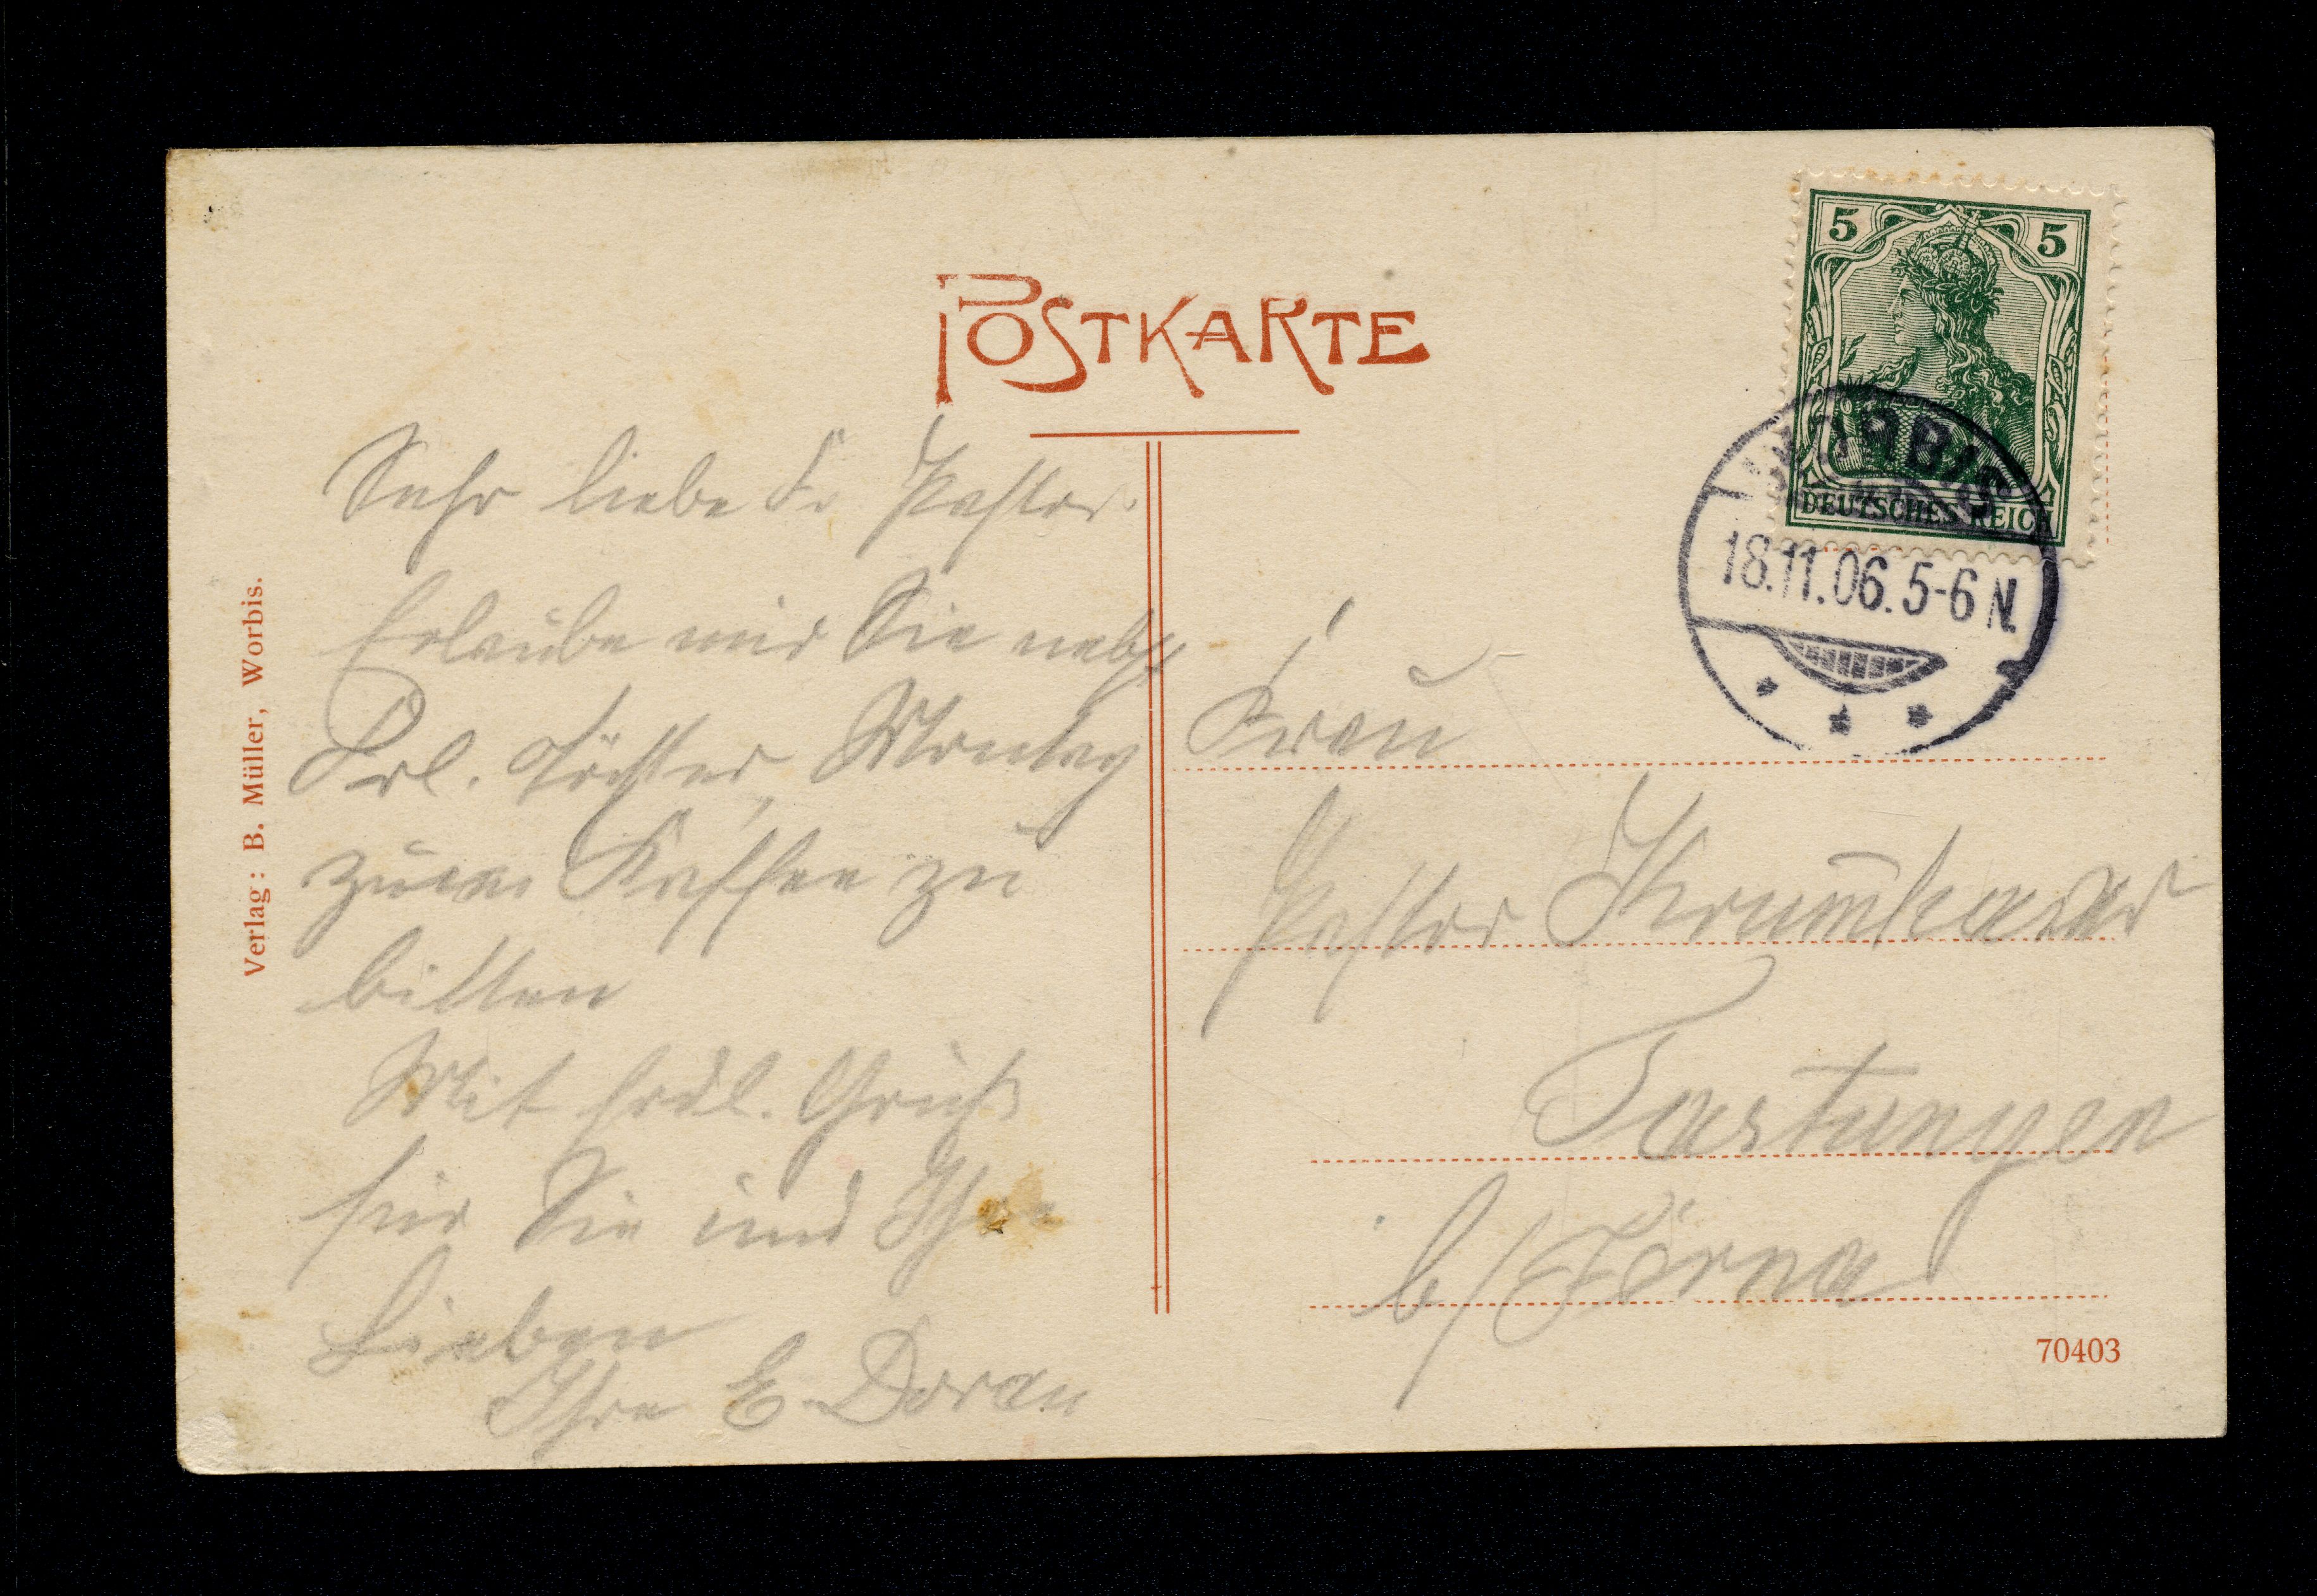 POSTKARTE
5 5
DEUTSCHES REICH
WORBIS
18.11.06. 5-6 N.
Sehr liebe Fr Pastor
Erlaube mir Sie nebst
Frl. Töchter, Montag
zum Kaffee zu
bitten
Mit frdl. Gruß
für Sie und Ihre
Lieben
Ihre E. Doran
Frau
Pastor
Tastungen
b/
Verlag: B. Müller, Worbis.
70403